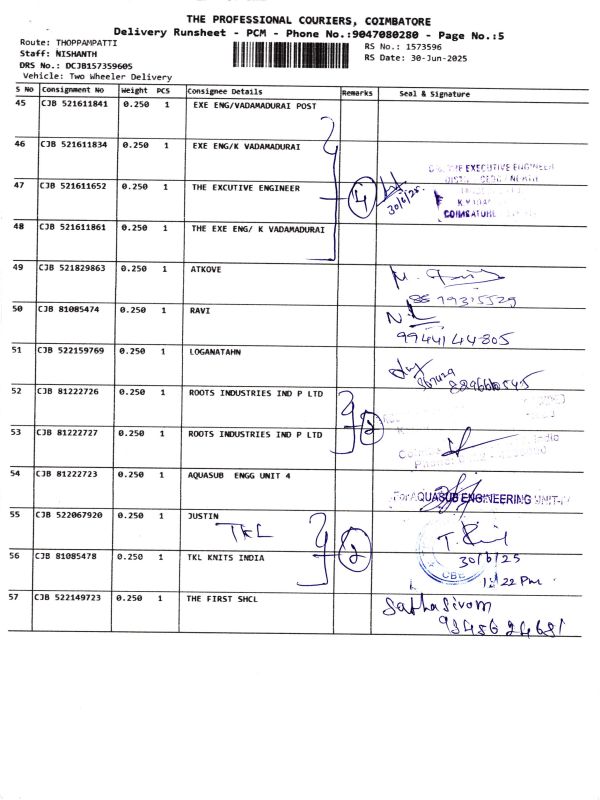 THE PROFESSIONAL COURIERS, COIMBATORE
Delivery Runsheet - PCM - Phone No.:9047080280 - Page No.:5
Route: THOPPAMPATTI
RS No.: 1573596
Staff: NISHANTH
RS Date: 30-Jun-2025
DRS No.: DCJB157359605
Vehicle: Two Wheeler Delivery
S No Consignment No Weight PCS Consignee Details Remarks Seal & Signature
45 CJB 521611841 0.250 1 EXE ENG/VADAMADURAI POST
46 CJB 521611834 0.250 1 EXE ENG/K VADAMADURAI
47 CJB 521611652 0.250 1 THE EXCUTIVE ENGINEER 4 30/6/25
48 CJB 521611861 0.250 1 THE EXE ENG/ K VADAMADURAI
49 CJB 521829863 0.250 1 ATKOVE
50 CJB 81085474 0.250 1 RAVI
9944144805
51 CJB 522159769 0.250 1 LOGANATAHN
52 CJB 81222726 0.250 1 ROOTS INDUSTRIES IND P LTD
2
53 CJB 81222727 0.250 1 ROOTS INDUSTRIES IND P LTD
54 CJB 81222723 0.250 1 AQUASUB ENGG UNIT 4
For AQUASUB ENGINEERING UNIT-IV
55 CJB 522067920 0.250 1 JUSTIN
TKL
56 CJB 81085478 0.250 1 TKL KNITS INDIA 2 30/6/25
CBE
22 Pm
57 CJB 522149723 0.250 1 THE FIRST SHCL Sathasivam
9345624681